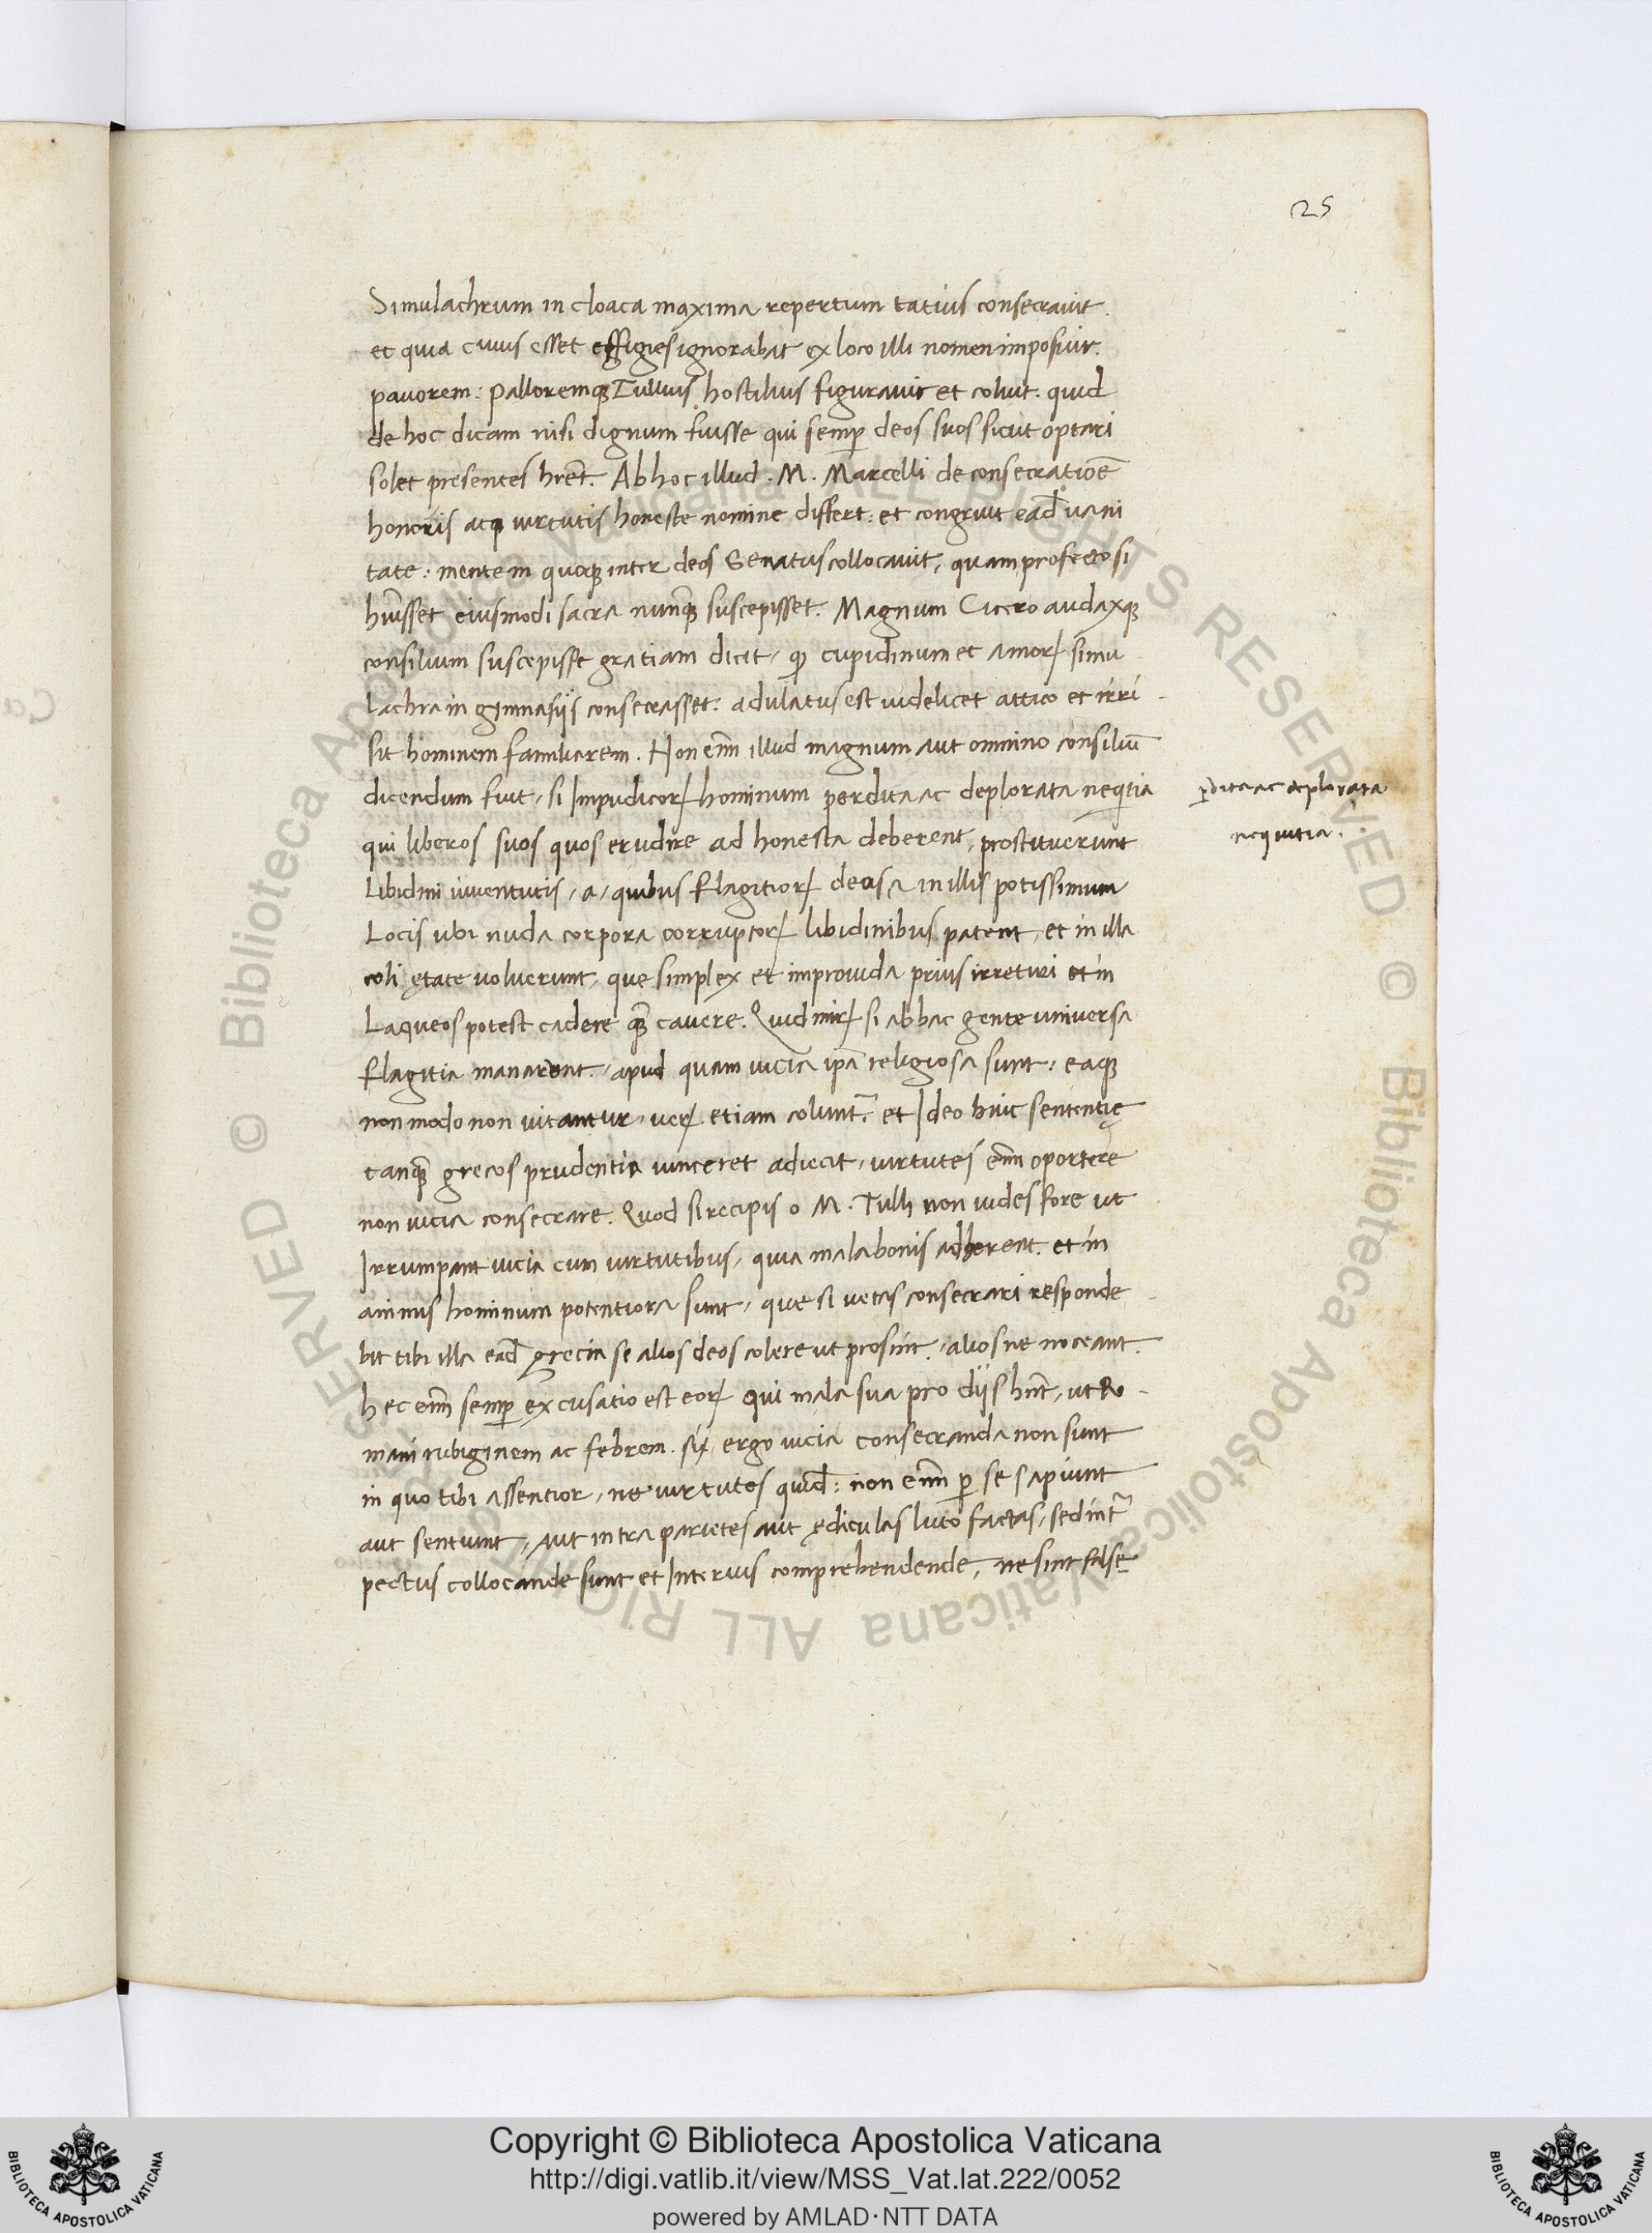 25
Simulachrum in cloaca maxima repertum tatius consecrauit.
et quia cuius esset effigies ignorabat ex loco illi nomen imposuit.
pauorem: Palloremq Tullius hostilius figurauit et coluit. quid
de hoc dicam nisi dignum fuisse qui semp deos suos sicut optari
solet presentes hret. Ab hoc illud. M. Marcelli de consecratioē
honoris atq uirtutis honeste nomine differt: et congruit ead uani
tate: mentem quoq inter deos Senatus collocauit, quam profecto si
huisset eiusmodi sacra nunq suscepisset. Magnum Cicero audaxq
consilium suscepisse gratiam dicit, q cupidinum et amorꝝ simu
lachra in gimnasijs consecrasset: adulatus est uidelicet attico et irri
sit hominem familiarem. Non enī illud magnum aut omnino consiliū
dicendum fuit, si Impudicorꝝ hominum perdita ac deplorata neqitia
perdita ac deplorata
nequitia.
qui liberos suos quos erudire ad honesta deberent, prostituerunt
libidini iuuentutis, a, quibus flagitiorꝝ deos a in illis potissimum
Locis ubi nuda corpora corruptorꝝ libidinibus patent, et in illa
coli ętate uoluerunt, que simplex et improuida prius irretiri et in
Laqueos potest cadere q̄ cauere. Quid mirꝝ si ab hac gente uniuersa
flagitia manarent. apud quam uicia ipā religiosa sunt: eaq
non modo non uitantur, uerꝝ etiam colunt. et Ideo huic sententię
tanq̄ grecos prudentia uinceret adiecit, uirtutes enī oportere
non uicia consecrare. Quod si recipis o M. Tulli non uides fore ut
Irrumpant uicia cum uirtutibus, quia mala bonis adherent. et in
animis hominum potentiora sunt, que si uetas consecrari responde
bit tibi illa ead grecia se alios deos colere ut prosint. alios ne noceant.
hec enī semp excusatio est eorꝝ qui mala sua pro dijs hnt, ut Ro
mani rubiginem ac febrem. si, ergo uicia consecranda non sunt
in quo tibi assentior, ne uirtutes quid: non enī p se sapiunt
aut sentiunt, aut intra parietes aut ędiculas luto factas, sed int
pectus collocande sunt et Interius comprehendende, ne sint false
Copyright © Biblioteca Apostolica Vaticana
http://digi.vatlib.it/view/MSS_Vat.lat.222/0052
powered by AMLAD·NTT DATA